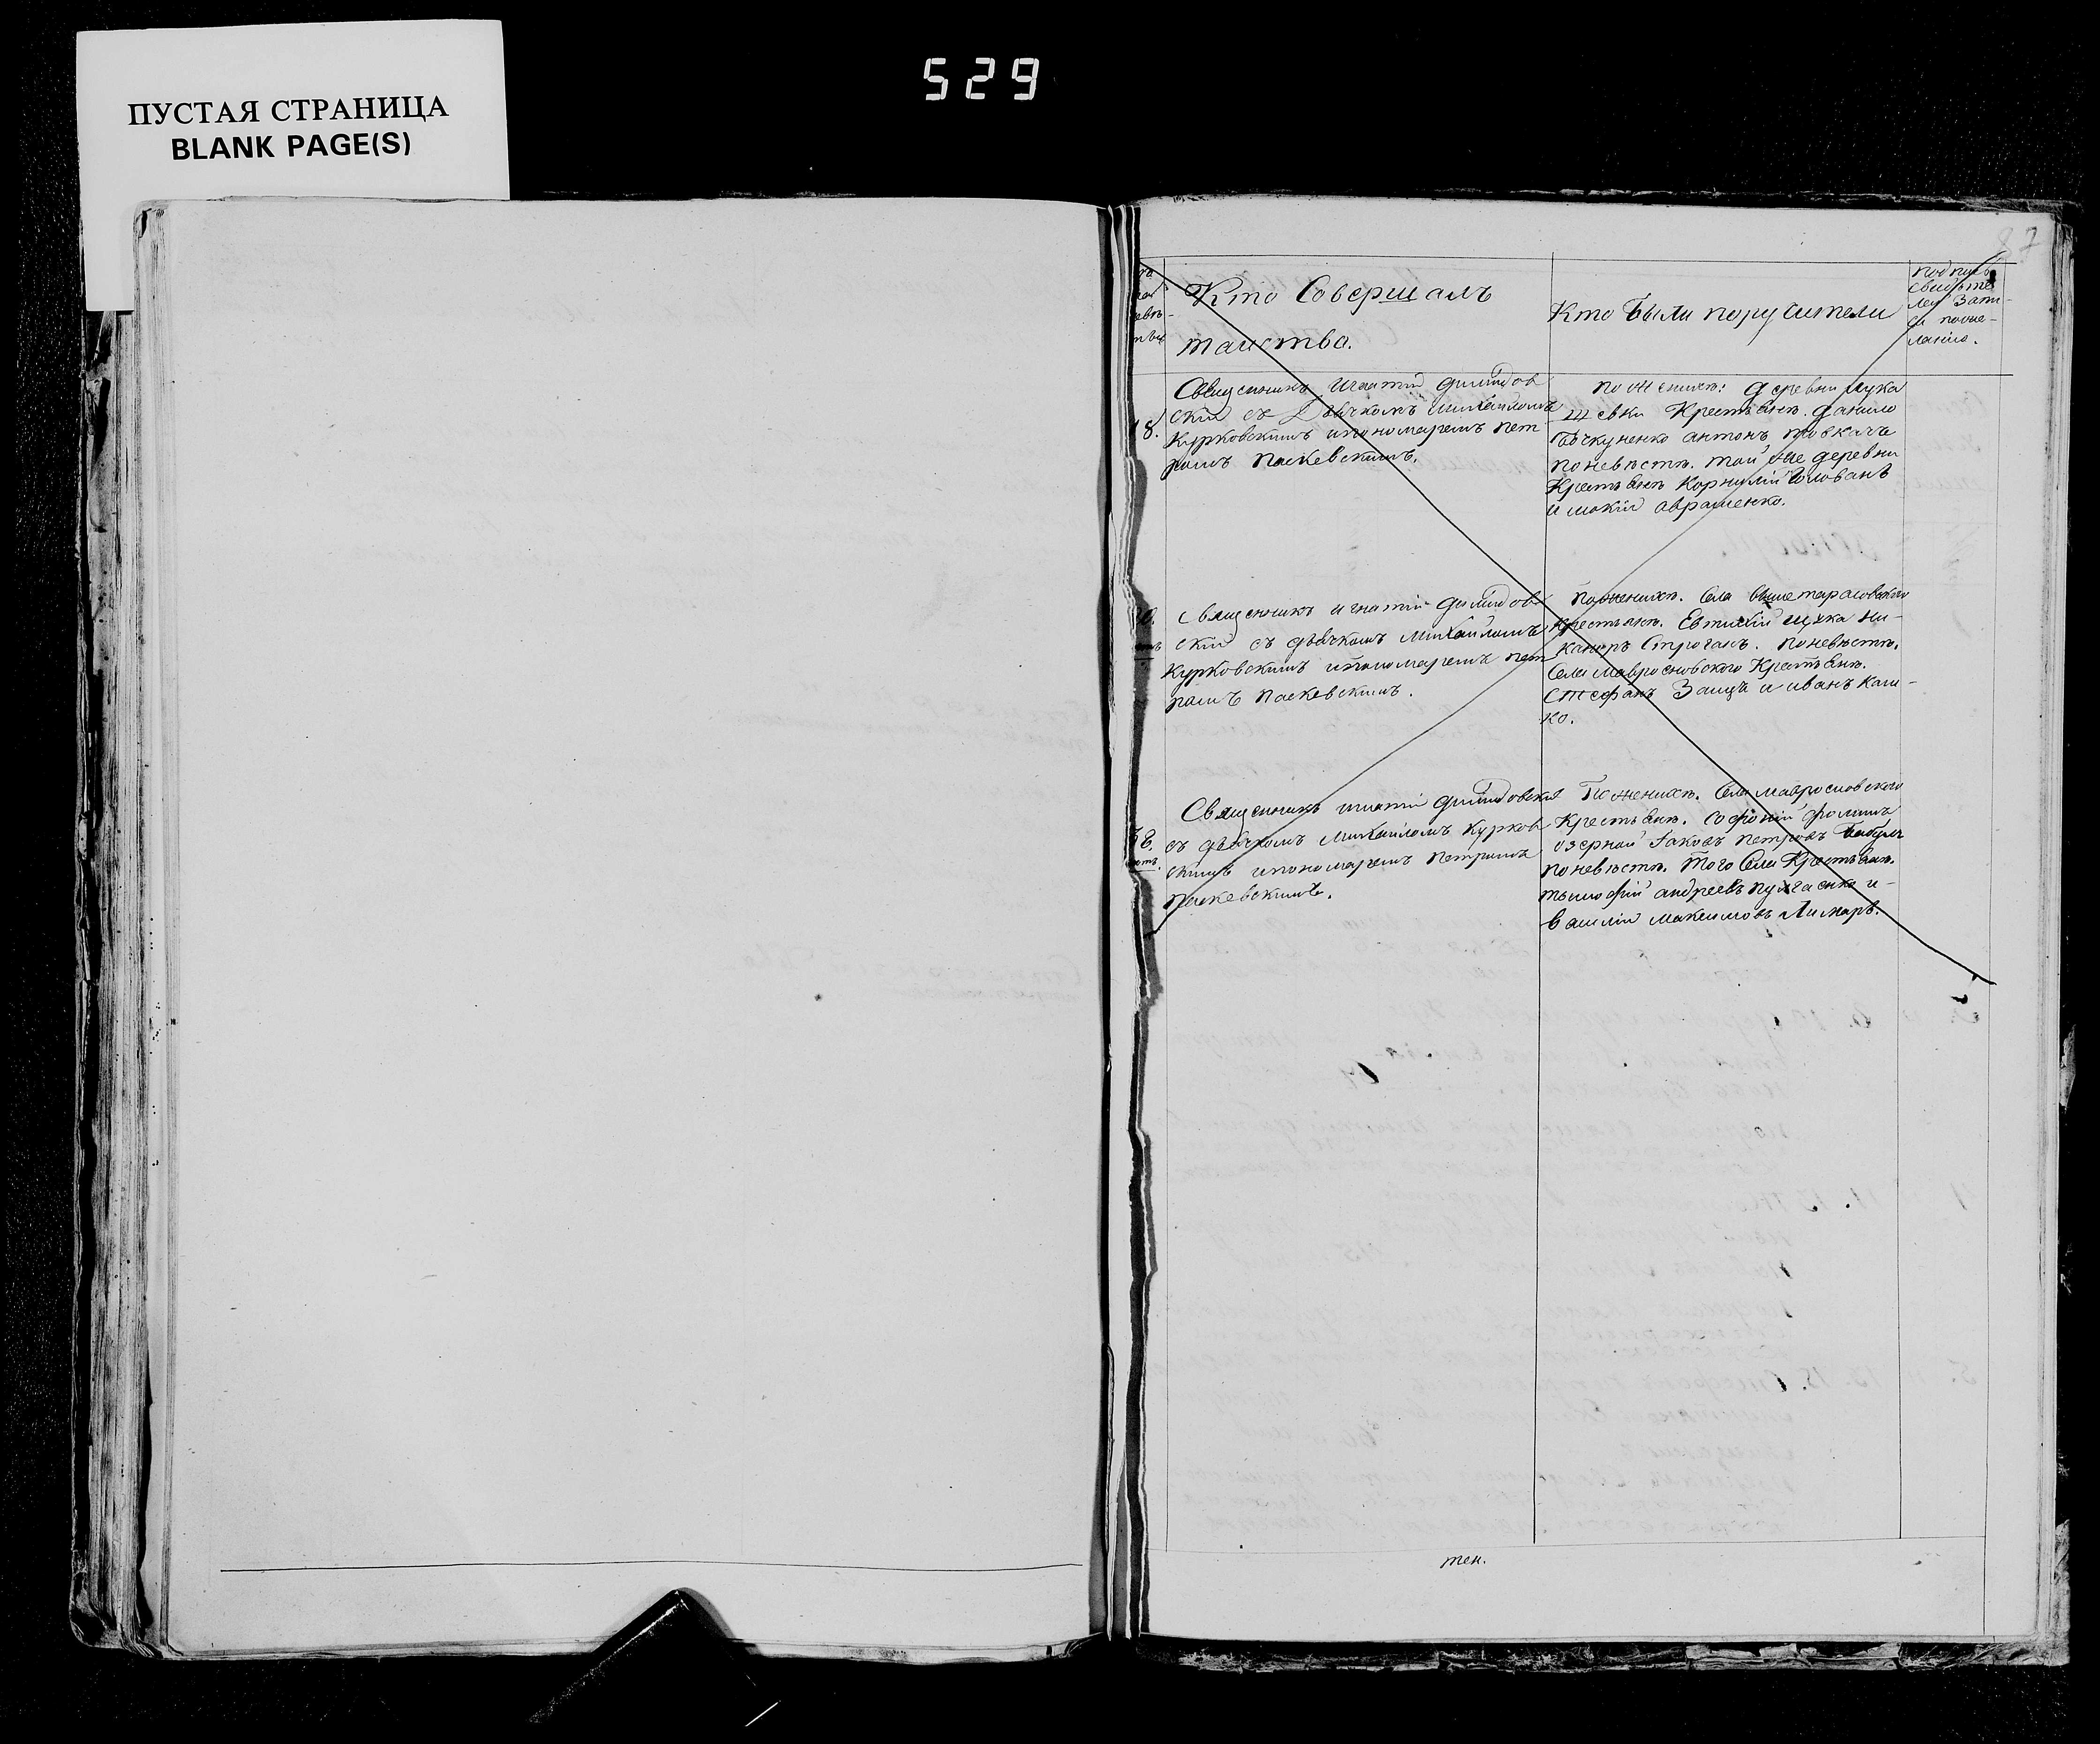 ПУСТАЯ СТРАНИЦА
BLANK PAGE(S)
529
87
Кто Совершалъ
таинство.
Кто были поручители
подпись
свидѣте
лей запи-
си по же-
ланію.
18.
Священникъ Игнатій Димидов
скій съ Дьячкомъ Михайломъ
Курковскимъ и пономаремъ Пет
ромъ Паскевскимъ.
по женихѣ: деревни Лука
шевки Крестьяне. Данило
Бочкуненко антонъ товкачъ
по невѣстѣ. той же деревни
Крестьяне Корнилій Голованъ
и мокій авраменко.
Священникъ игнатій Димидов
скій съ дьячкомъ Михайломъ
Курковскимъ и пономаремъ Пет
ромъ Паскевскимъ.
По женихѣ. Села Вышетарасовского
Крестьяне. Евтихій щука Ни-
каноръ Строганъ. По невѣстѣ.
Села Маврословского Крестьяне.
Стефанъ Заецъ и иванъ Каш-
ко.
Священникъ игнатій Димидовскій
съ дьячкомъ Михайломъ Курков
скимъ и пономаремъ Петромъ
Паскевскимъ.
По женихѣ. Села Маврословского
Крестьяне. Софоній фоминъ
озерной Іаковъ петровъ Бабычъ
По невѣстѣ. Того Села Крестьяне.
тымофій андреевъ пугаенко и-
василій максимовъ Лимарь.
тен.